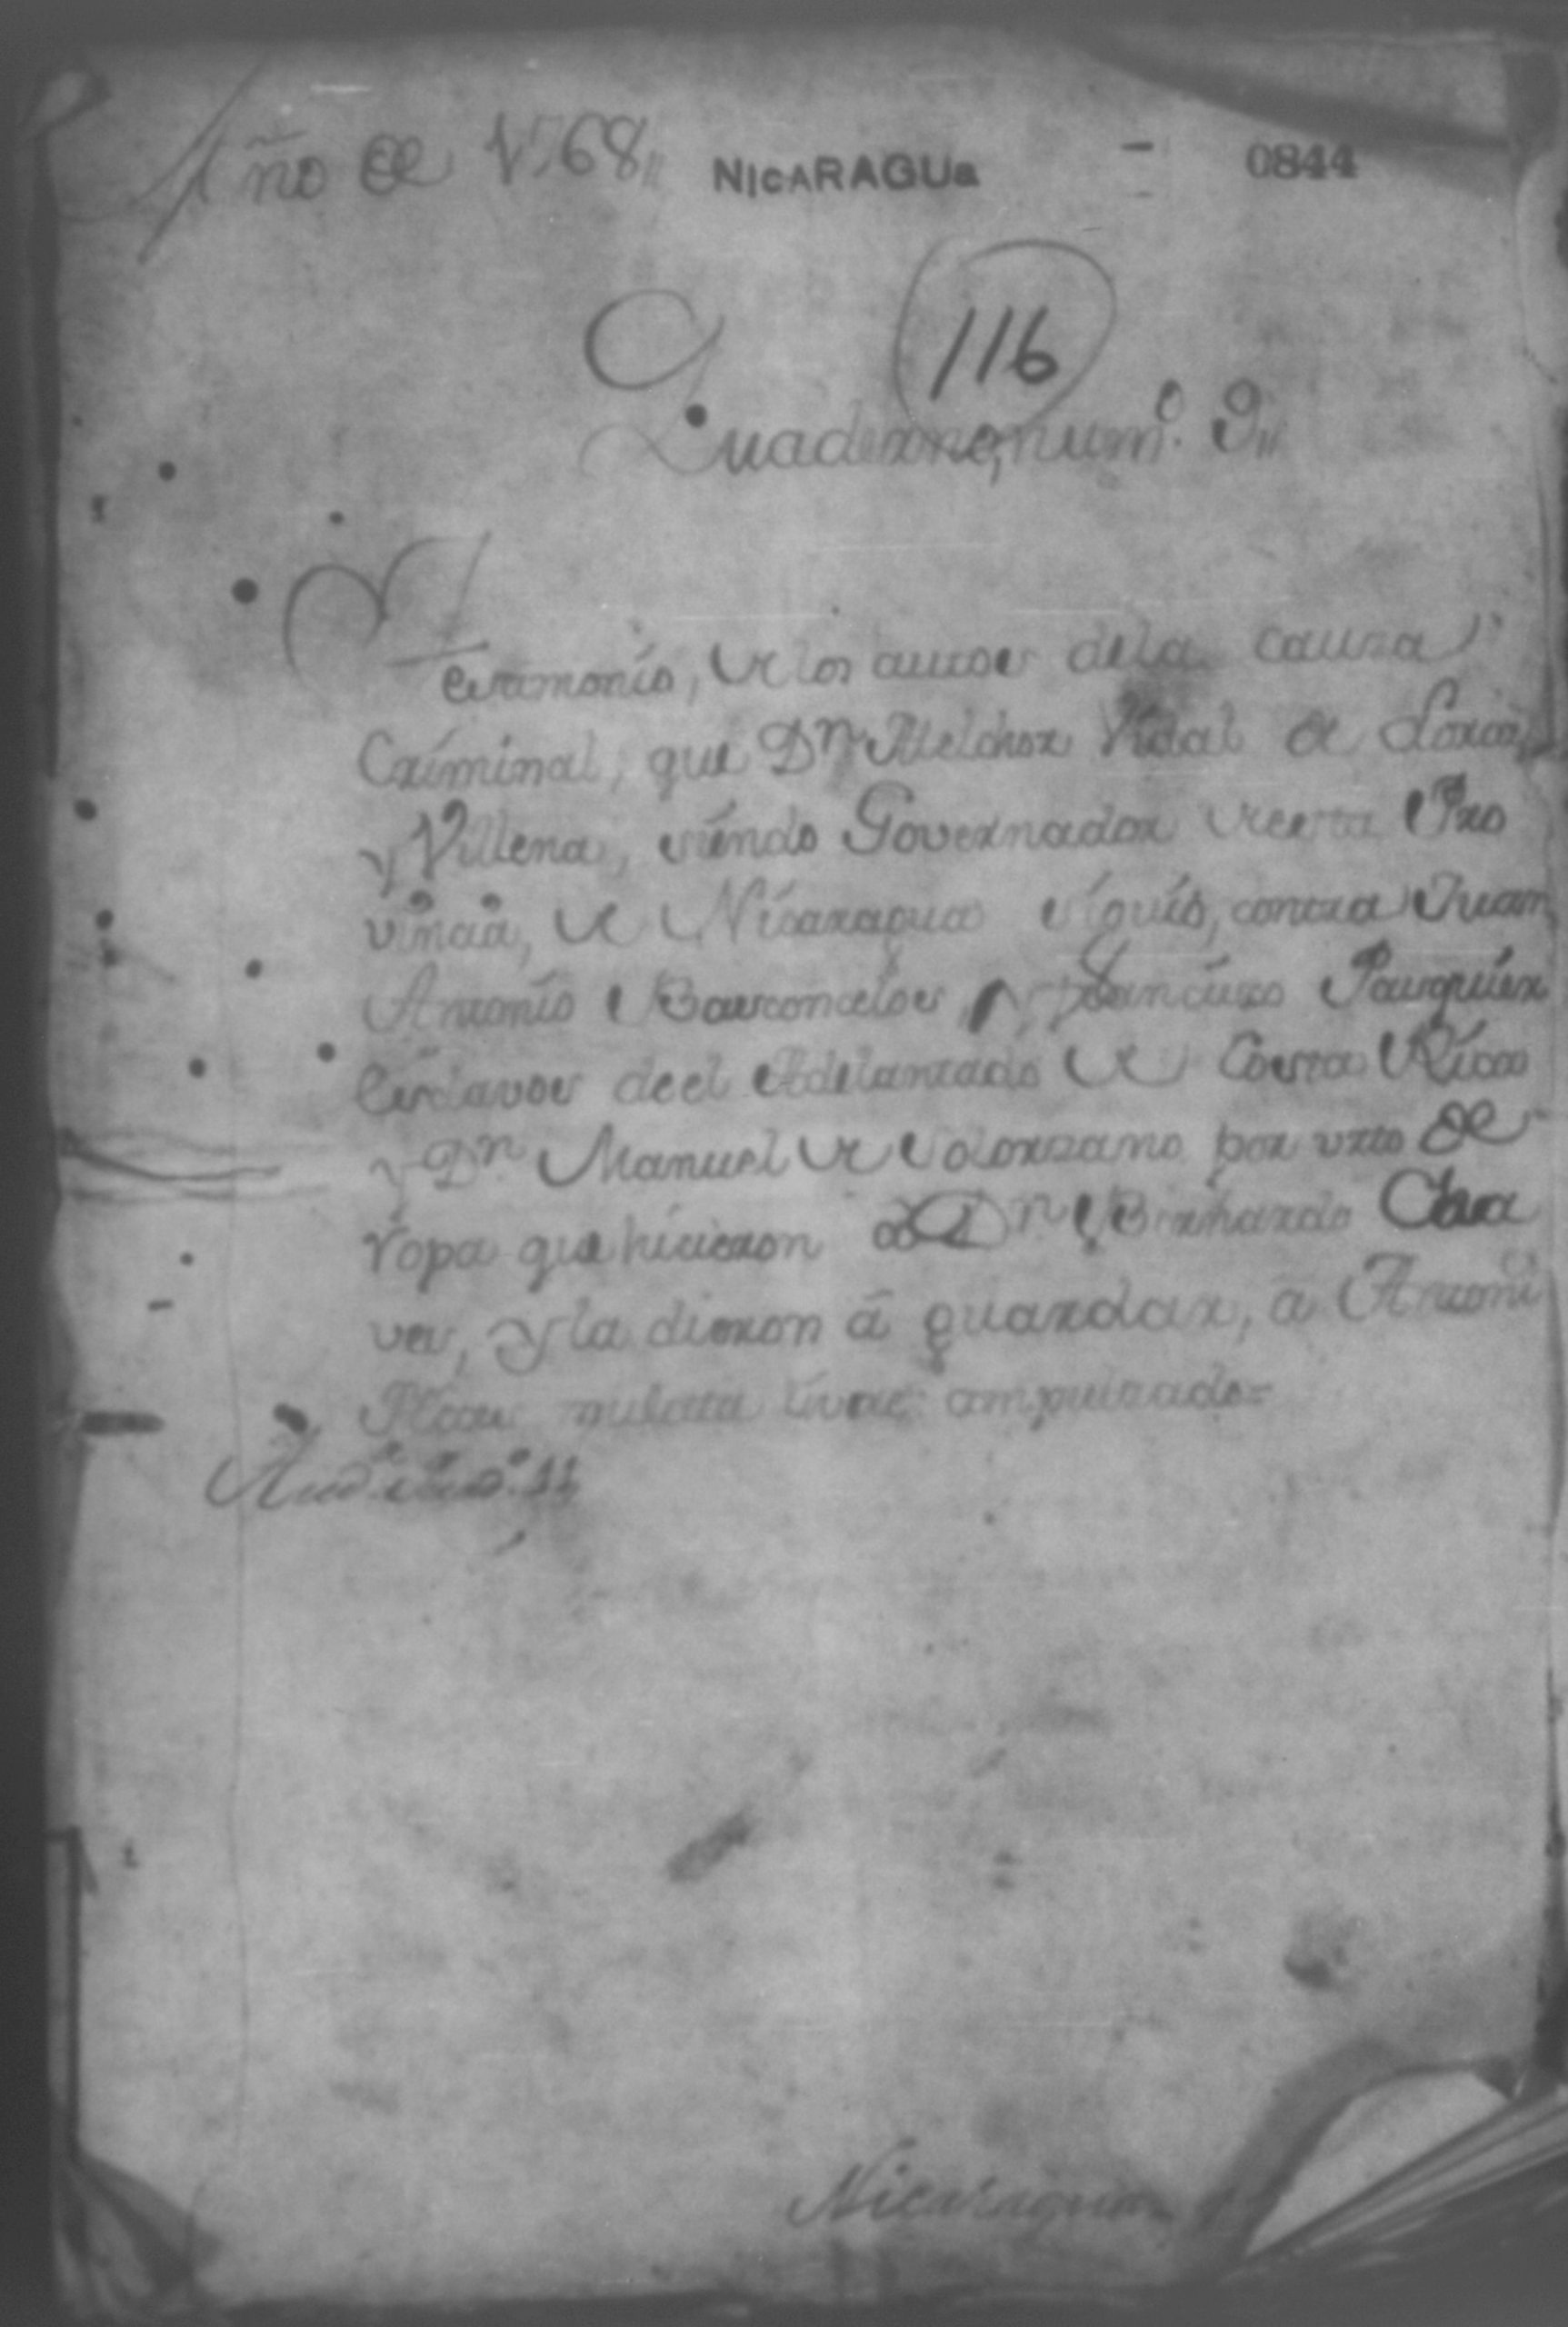 Año de 1768 NICARAGUA - 0844
116
Quaderno, num.º 9
Testimonio, de los autos de la causa
Criminal, que Dn Melchor Vidal de Lorca,
y Villena, siendo Governador de esta Pro
vincia, de Nicaragua siguió, contra Juan
Antonio Basconcelos, y Francisco Pasquier
Esclavos de el Adelantado de Costa Rica
y Dn Manuel de Solorzano por urto de
ropa que hicieron a Dn Bernardo Cha
ves, y la dieron á guardar, a Antoni
mulata
Nicaragua